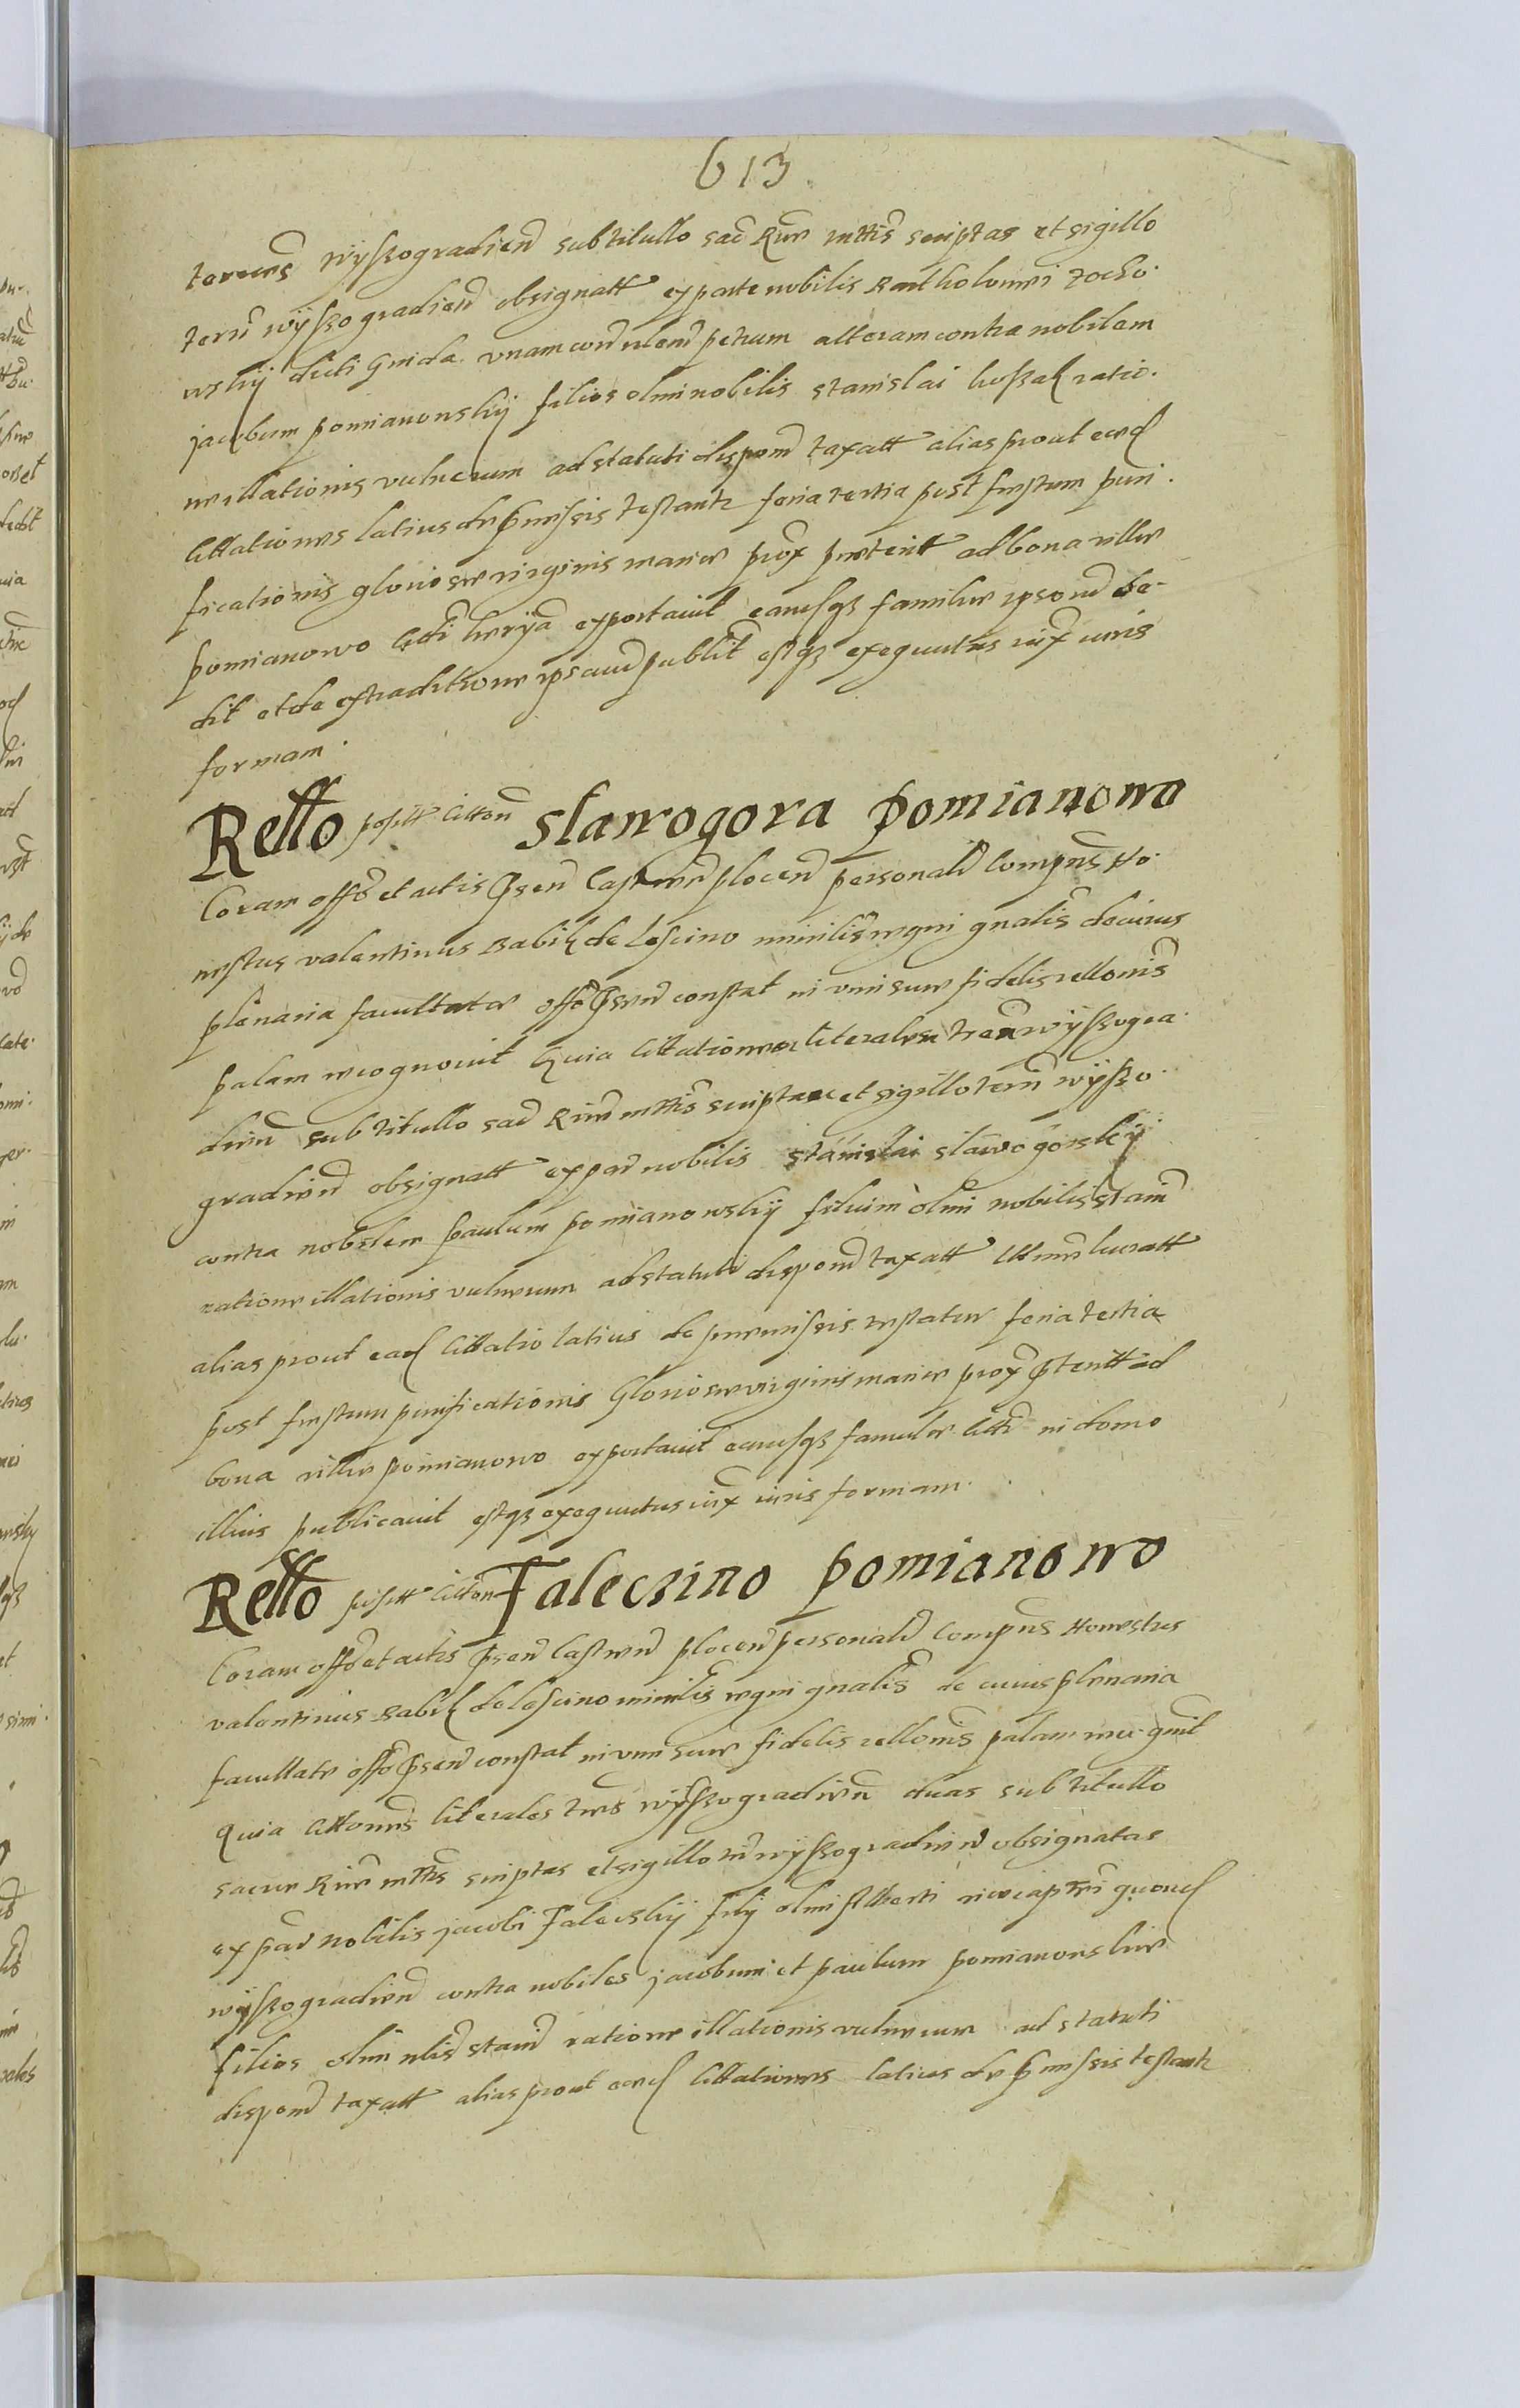 613
terrens wyssogradien subtitullo sac Rum mttis scriptas et sigillo
terrn wyssogradien obsignatt ex parte nobilis Bartholomei zocho.
wskij dicti Gnida vnam contra petrum alteram contra nobilem
jacobum pomianowskij filios olim nobilis stanislai kossak ratio.
ne illationis vulnerum ad statuti dispom taxatt alias prout eaed
Cittationes latius de pmissis testantr feria tertia post festum puri.
ficationis gloriose virginis marie prox preteritt ad bona ville
pomianowo exportavit earusqz familie ipsorud de-
dit et de extraditione ipsaud publict estqz exequutus iux iuris
formam.
Rello positt Citton slawogora pomianowo
Coram offo et actis psen Castren plocen personalr Compns Ho.
nestus valentinus Babik de lescino minilis regni gnalis de cuius
plenaria facultate offo psen constat in vim sue fidelis rellonis
palam recognovit Quia Cittationem literalem tren wyssogra.
dien sub titullo sac Rum mttis scriptam et sigillo terrn wysso.
gradien obsignatt ex par nobilis stanislai slawogorskij
contra nobilem paulum pomianowskij filium olim nobilis stanis
ratione illationis vulnerum ad statuti dispom taxatt
alias prout eaed Cittatio latius de premissis testatur feria tertia
post festum purificationis Gloriose virginis marie prox pteritt ad
bona ville pomianowo exportavit earusqz familie in domo
illius publicavit estqz exequutus iux iuris formam.
Rello positt Citton Falecino pomianowo
Coram offo et actis psen Castren plocen personalr Compns Honestus
valentinus Babik de lescino minilis regni gnalis de cuius plenaria
facultate offo psen constat in vim sue fidelis rellonis palam recognit
Quia Cittones literales tres wyssogradien duas sub titullo
sacre Rum mttis scriptas et sigillo trn wyssogradien obsignatas
ex par nobilis jacobi Falecskij filij olim Alberti vicecaptei quond
wyssogradien contra nobiles jacobum et paulum pomianowskie
filios olim nlis stanis ratione illationis vulnerum ad statuti
dispom taxatt alias prout eaed Cittationes latius de pmissis testantr